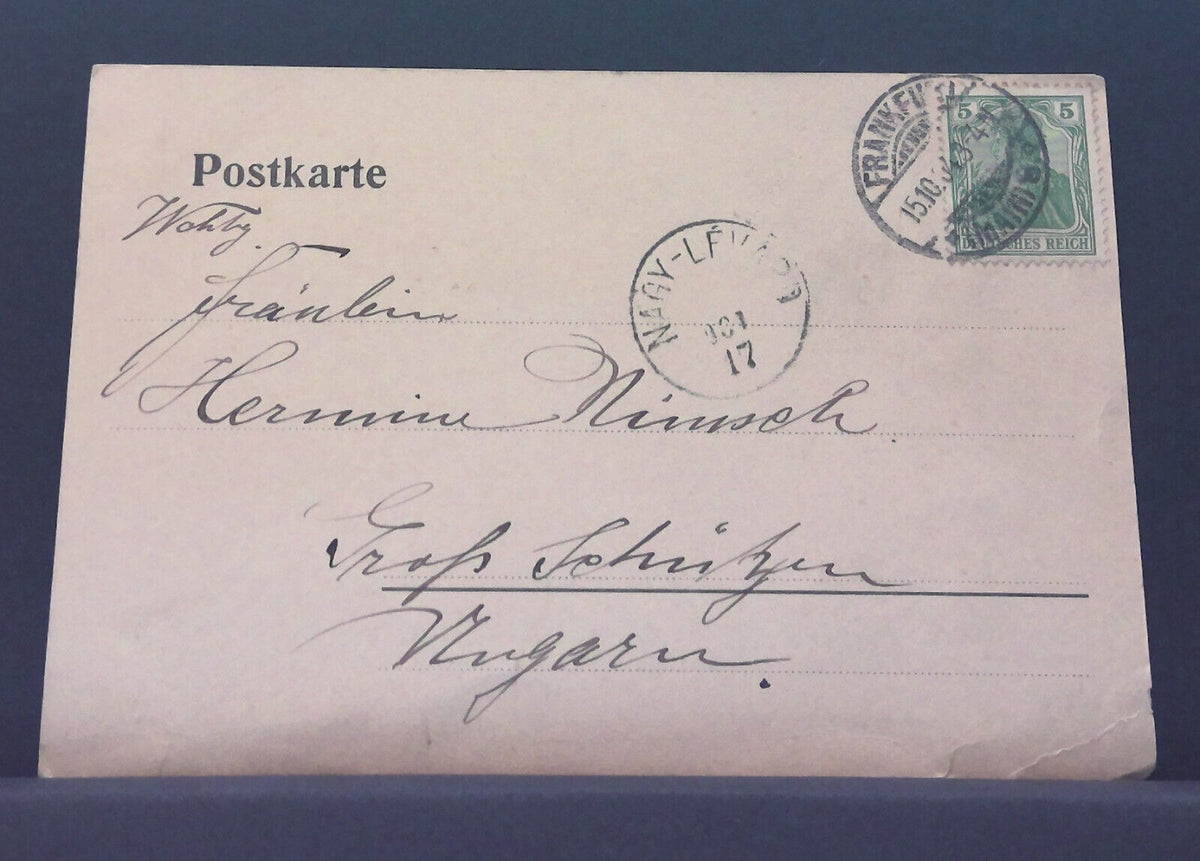 Postkarte
5 5
DEUTSCHES REICH
15.10.
Fräulein
NAGY-LÉVÁRD
OCT
17
Hermine Nimsch
Groß Schützen
Ungarn